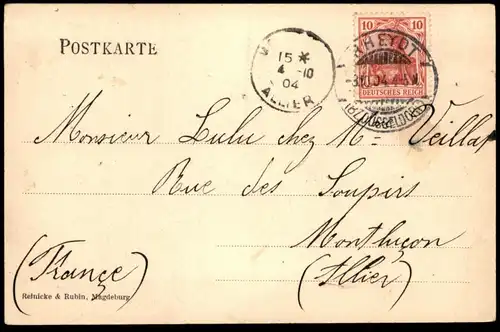 POSTKARTE
15 *
4 -10
04
ALLIER
10 10
DEUTSCHES REICH
RHEYDT
(BZ. DÜSSELDORF)
Monsieur Lulu chez Mr Veillat
Rue des Soupirs
Montluçon
(France) (Allier)
Reinicke & Rubin, Magdeburg